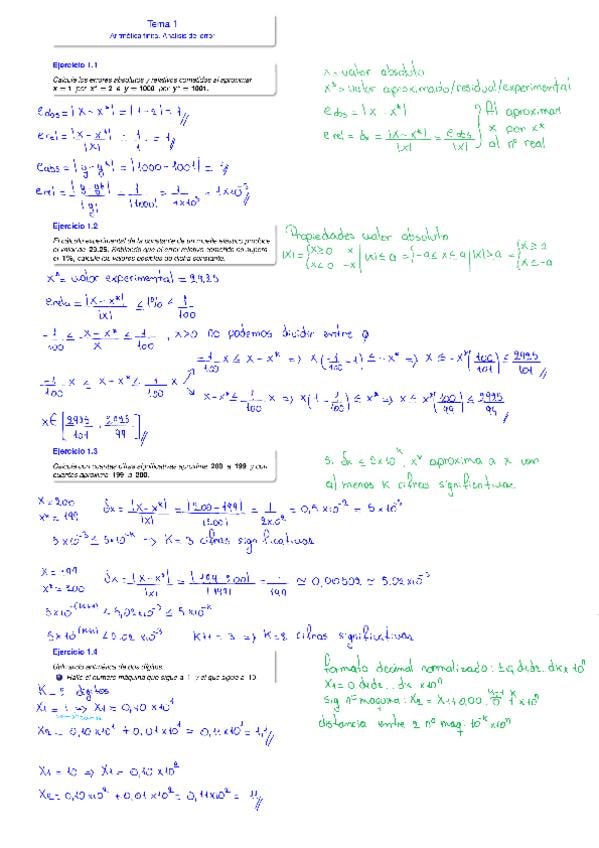 Tema 1
Aritmética finita. Análisis del error
Ejercicio 1.1
Calcule los errores absolutos y relativos cometidos al aproximar
x = 1 por x* = 2 e y = 1000 por y* = 1001.
x = valor absoluto
x* = valor aproximado/residual/experimental
eabs = |x - x*| = |1-2| = 1
eabs = |x - x*|
erel = |x - x*| / |x| = 1/1 = 1
erel = δx = |x - x*| / |x| = eabs / |x|
Al aproximar
x por x*
al nº real
eabs = |y - y*| = |1000 - 1001| = 1
erel = |y - y*| / |y| = 1 / |1000| = 1 / 1x10³ = 1x10⁻³
Ejercicio 1.2
El cálculo experimental de la constante de un muelle elástico produce
el 1%, calcule los valores posibles de dicha constante.
Propiedades valor absoluto
|x| = { x≥0 x
x<0 -x
|x| ≤ a = {-a ≤ x ≤ a
|x| ≥ a = { x ≥ a
x ≤ -a
x* = valor experimental = 29.25
erel = |x - x*| / |x| ≤ 1% ≤ 1/100
-1/100 ≤ x - x* / x ≤ 1/100 , x>0 no podemos dividir entre 0
-1/100 x ≤ x - x* ≤ 1/100 x
-1/100 x ≤ x - x* => x(-1/100 - 1) ≤ -x*
x - x* ≤ 1/100 x => x(1 - 1/100) ≤ x* => x ≤ x*(100/99)
Ejercicio 1.3
Calcule con cuántas cifras significativas aproxima 200 a 199 y con
cuántas aproxima 199 a 200.
x* aproxima a x con
al menos k cifras significativas
x = 200
x* = 199
δx = |x - x*| / |x| = |200 - 199| / |200| = 1 / 2x10² = 0,5x10⁻² = 5x10⁻³
5x10⁻³ ≤ 5x10⁻ᵏ → k = 3 cifras significativas
x = 199
x* = 200
δx = |x - x*| / |x| = |199 - 200| / |199| = 1 / 199 ≃ 0,00502 ≃ 5.02x10⁻³
5x10⁻⁽ᵏ⁺¹⁾ ≤ 5,02x10⁻³ ≤ 5x10⁻ᵏ
k+1 = 3 → k = 2 cifras significativas
Ejercicio 1.4
Utilizando aritmética de dos dígitos,
Halle el número máquina que sigue a 1 y el que sigue a 10.
formato decimal normalizado:
x1 = 0,d1d2...dk x10ⁿ
sig nº maquina: x2 = x1 + 0,00...01 x10ⁿ
distancia entre 2 nº maq: 10⁻ᵏx10ⁿ
x1 = 1 → x1 = 0,10x10¹
x2 = 0,10x10¹ + 0,01x10¹ = 0,11x10¹ = 1,1
x1 = 10 => x1 = 0,10x10²
x2 = 0,10x10² + 0,01x10² = 0,11x10² = 11